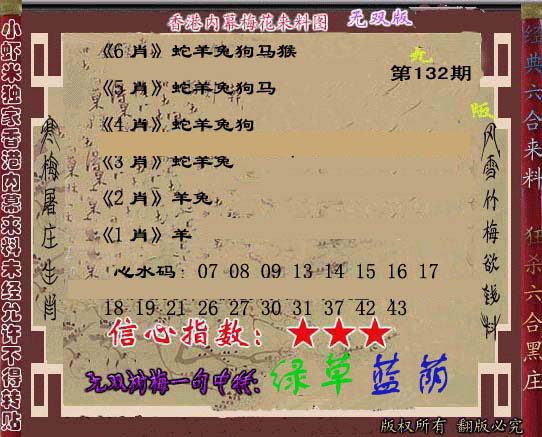 香港内幕梅花来料图 无双版
《6 肖》蛇羊兔狗马猴
第132期
《5 肖》蛇羊兔狗马
《4 肖》蛇羊兔狗
《3 肖》蛇羊兔
《2 肖》羊兔
《1 肖》羊
心水码： 07 08 09 13 14 15 16 17
18 19 21 26 27 30 31 37 42 43
信心指数：★★★
无双剑梅一句中特：绿草蓝荫
版权所有 翻版必究
小虾米独家香港内幕来料未经允许不得转贴
寒梅屠庄生肖
风雪竹梅欲钱料
经典六合来料 狂杀六合黑庄